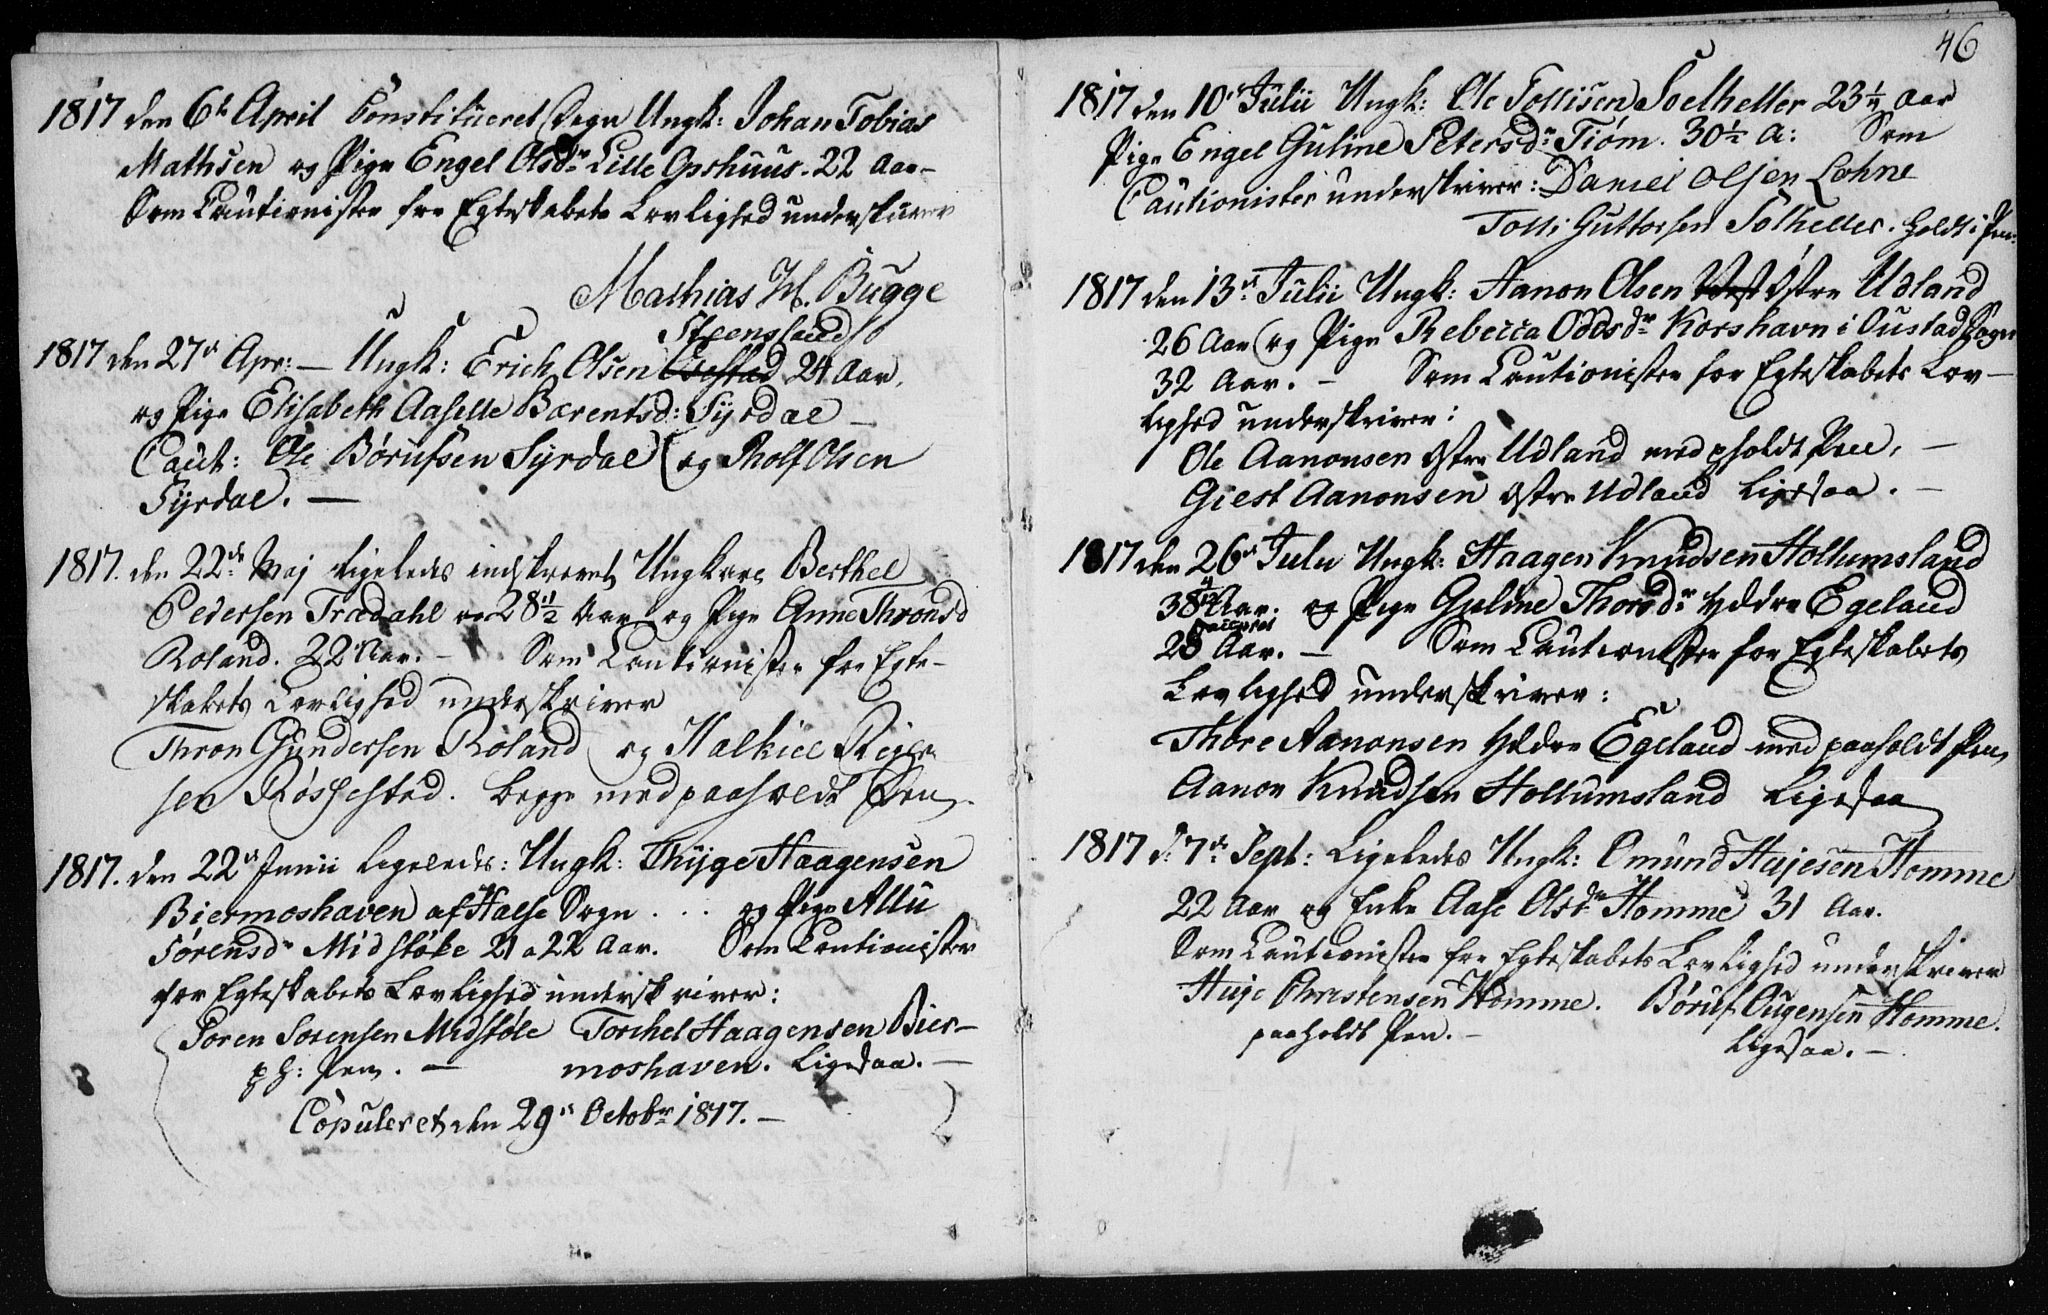 1817 den 6te April Constitueret Degn Ungk: Johan Tobias
Mathsen og Pige Engel Olsdr Lille Opshuus. 22 Aar –
Som Cautionister for Egteskabets Lovlighed underskriver
Mathias H. Bugge
Steensland
1817 den 27de Apr: – Ungk: Erich Olsen 24 Aar,
og Pige Elisabeth Aaselle Barentsd: Syrdal –
Caut: Ole Børufsen Syrdal og Rolf Olsen
Syrdal. –
1817. den 22de Maj ligeledes indskrevet Ungkarl Berthel
Pedersen Trædahl 28 1/2 Aar og Pige Anne Thronsd
Roland. 22 Aar. – Som Cautionister for Egte-
skabets Lovlighed underskriver
Thron Gundersen Roland og Halkiel
sen Røssestad. begge med paaholdt Pen.
1817. den 22de Junii ligeledes: Ungk: Thyge Haagensen
Biermoshaven af Halse Sogn . . . og Pige Allu
Sørensdr Midstøke 21 a 22 Aar. Som Cautionister
for Egteskabets Lovlighed underskriver:
Soren Sorensen Midstøle Torchel Haagensen Bier-
p h: Pen. – moshaven. Ligesaa. –
Copuleret den 29de Octobr 1817. –
46
1817 den 10de Julii Ungk: Ole Tollisen Soelheller 23 1/4 Aar
Pige Engel Guline Petersdr Tiøm. 30 1/2 A: Som
Cautionister underskriver: Daniel Olsen Lohne
Tolli Guttorsen Solheller. holdt i Pen.
1817 den 13de Julii Ungk: Aanon Olsen Vest Østre Udland
26 Aar og Pige Rebecca Oddsdr Korshavn i Oustad Sogn
32 Aar. – Som Cautionister for Egteskabets Lov-
lighed underskriver:
Ole Aanonsen Østre Udland med pholdt Pen, –
Giest Aanonsen østre Udland Ligesaa. –
1817 den 26de Julii Ungk: Haagen Knudsen Hollumsland
38 Aar. og Pige Guline Thorsdr Yddre Egeland
28 Aar. – Som Cautionister for Egteskabets
Lovlighed underskriver:
Thore Aanonsen Yddre Egeland med paaholdt Pen,
Aanon Knudsen Hollumsland Ligesaa
1817 d: 7de Sept: Ligeledes Ungk: Omund Hujesen Homme
22 Aar og Enke Aase Olsdr Homme 31 Aar.
Som Cautionister for Egteskabets Lovlighed underskriver
Huje Christensen Homme. Børuf Ougensen Homme.
paaholdt Pen. – Ligesaa. –